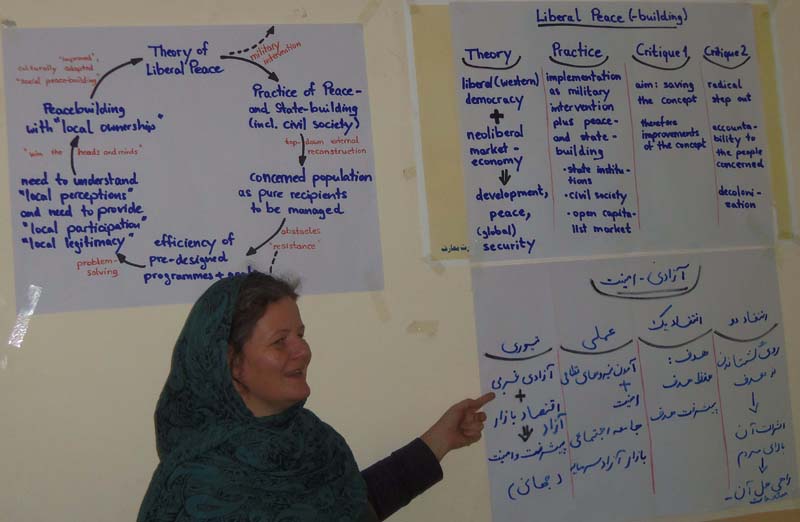 Theory of
Liberal Peace
military
intervention
Practice of Peace-
and State-building
(incl. civil society)
top-down external
reconstruction
Concerned population
as pure recipients
to be managed
obstacles
"resistance"
efficiency of
pre-designed
programmes +
problem-
solving
need to understand
"local perceptions"
and need to provide
"local participation"
"local legitimacy"
"win the heads and minds"
Peacebuilding
with "local ownership"
"improved",
culturally adapted
"social peace-building"
Liberal Peace (-building)
Theory
liberal (western)
democracy
+
neoliberal
market-
economy
development,
peace,
(global)
security
Practice
implementation
as military
intervention
plus peace-
and state-
building
• state institu-
tions
• civil society
• open capita-
list market
Critique 1
aim: saving
the concept
therefore
improvements
of the concept
Critique 2
radical
step out
accounta-
bility to
the people
concerned
decoloni-
zation
آزادی - امنیت
تیوری
آزادی غربی
+
اقتصاد بازار
آزاد
پیشرفت و امنیت
(جهانی)
عملی
آمدن نیروهای نظامی
+
امنیت
جامعه اجتماعی
بازار آزاد
انتقاد یک
هدف:
حفظ هدف
پیشرفت هدف
انتقاد دو
هدف
بالای مردم